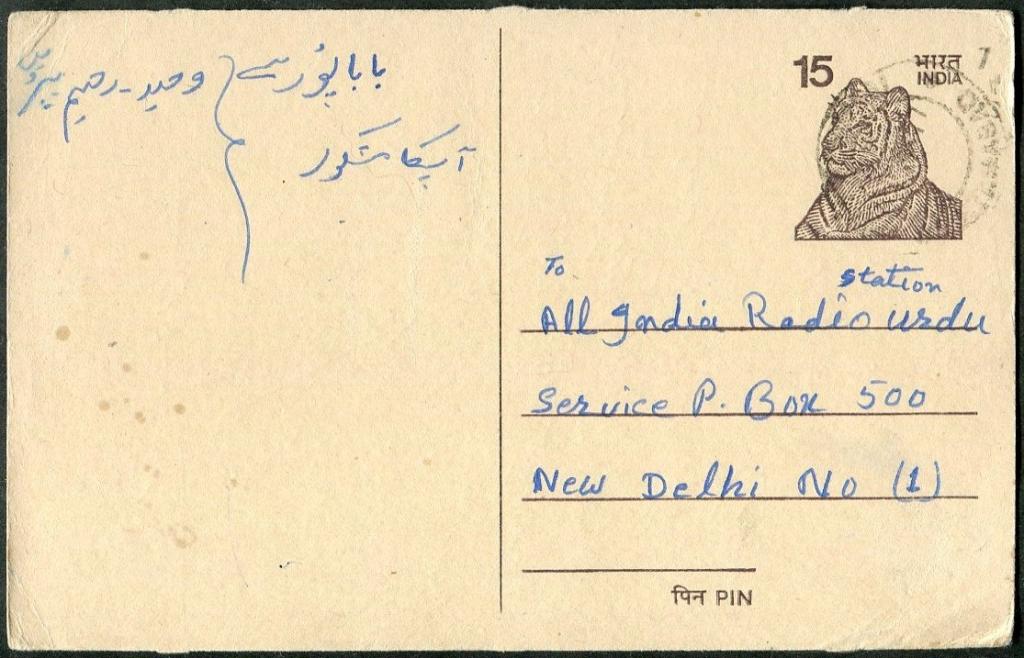 بابا پور سے } وحید - رحیم
آپکا مشکور
15 भारत
INDIA
To
station
All India Radio urdu
Service P. Box 500
New Delhi No (1)
पिन PIN